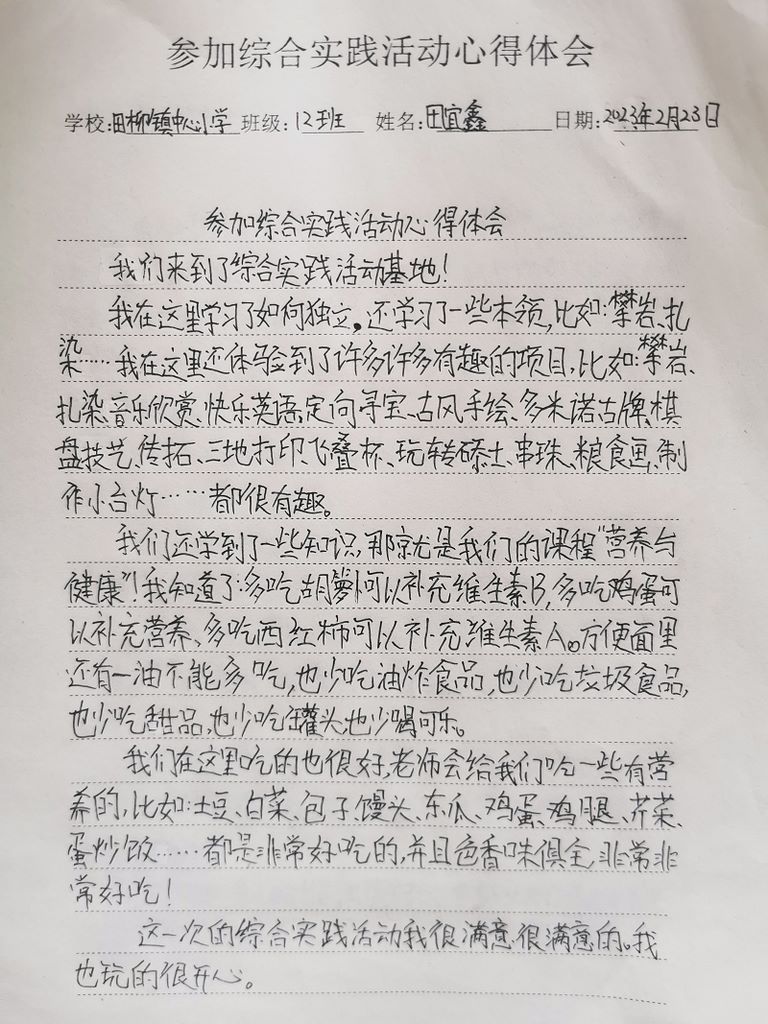 参加综合实践活动心得体会
学校:田柳镇中心小学 班级:12班 姓名:田宜鑫 日期:2023年2月23日
参加综合实践活动心得体会
我们来到了综合实践活动基地!
我在这里学习了如何独立。还学习了一些本领,比如:攀岩、扎
染……我在这里还体验到了许多许多有趣的项目,比如:攀岩、
扎染、音乐欣赏、快乐英语、定向寻宝、古风手绘、多米诺古牌、棋
盘技艺、传拓、三地打印、飞叠杯、玩转砖土、串珠、粮食画、制
作小台灯……都很有趣。
我们还学到了一些知识,那就是我们的课程“营养与
健康”!我知道了:多吃胡萝卜可以补充维生素B,多吃鸡蛋可
以补充营养、多吃西红柿可以补充维生素A。方便面里
还有一油不能多吃,也少吃油炸食品,也少吃垃圾食品,
也少吃甜品,也少吃罐头,也少喝可乐。
我们在这里吃的也很好,老师会给我们吃一些有营
养的,比如:土豆、白菜、包子、馒头、东瓜、鸡蛋、鸡腿、芹菜、
蛋炒饭……都是非常好吃的,并且色香味俱全,非常非
常好吃!
这一次的综合实践活动我很满意很满意的。我
也玩的很开心。